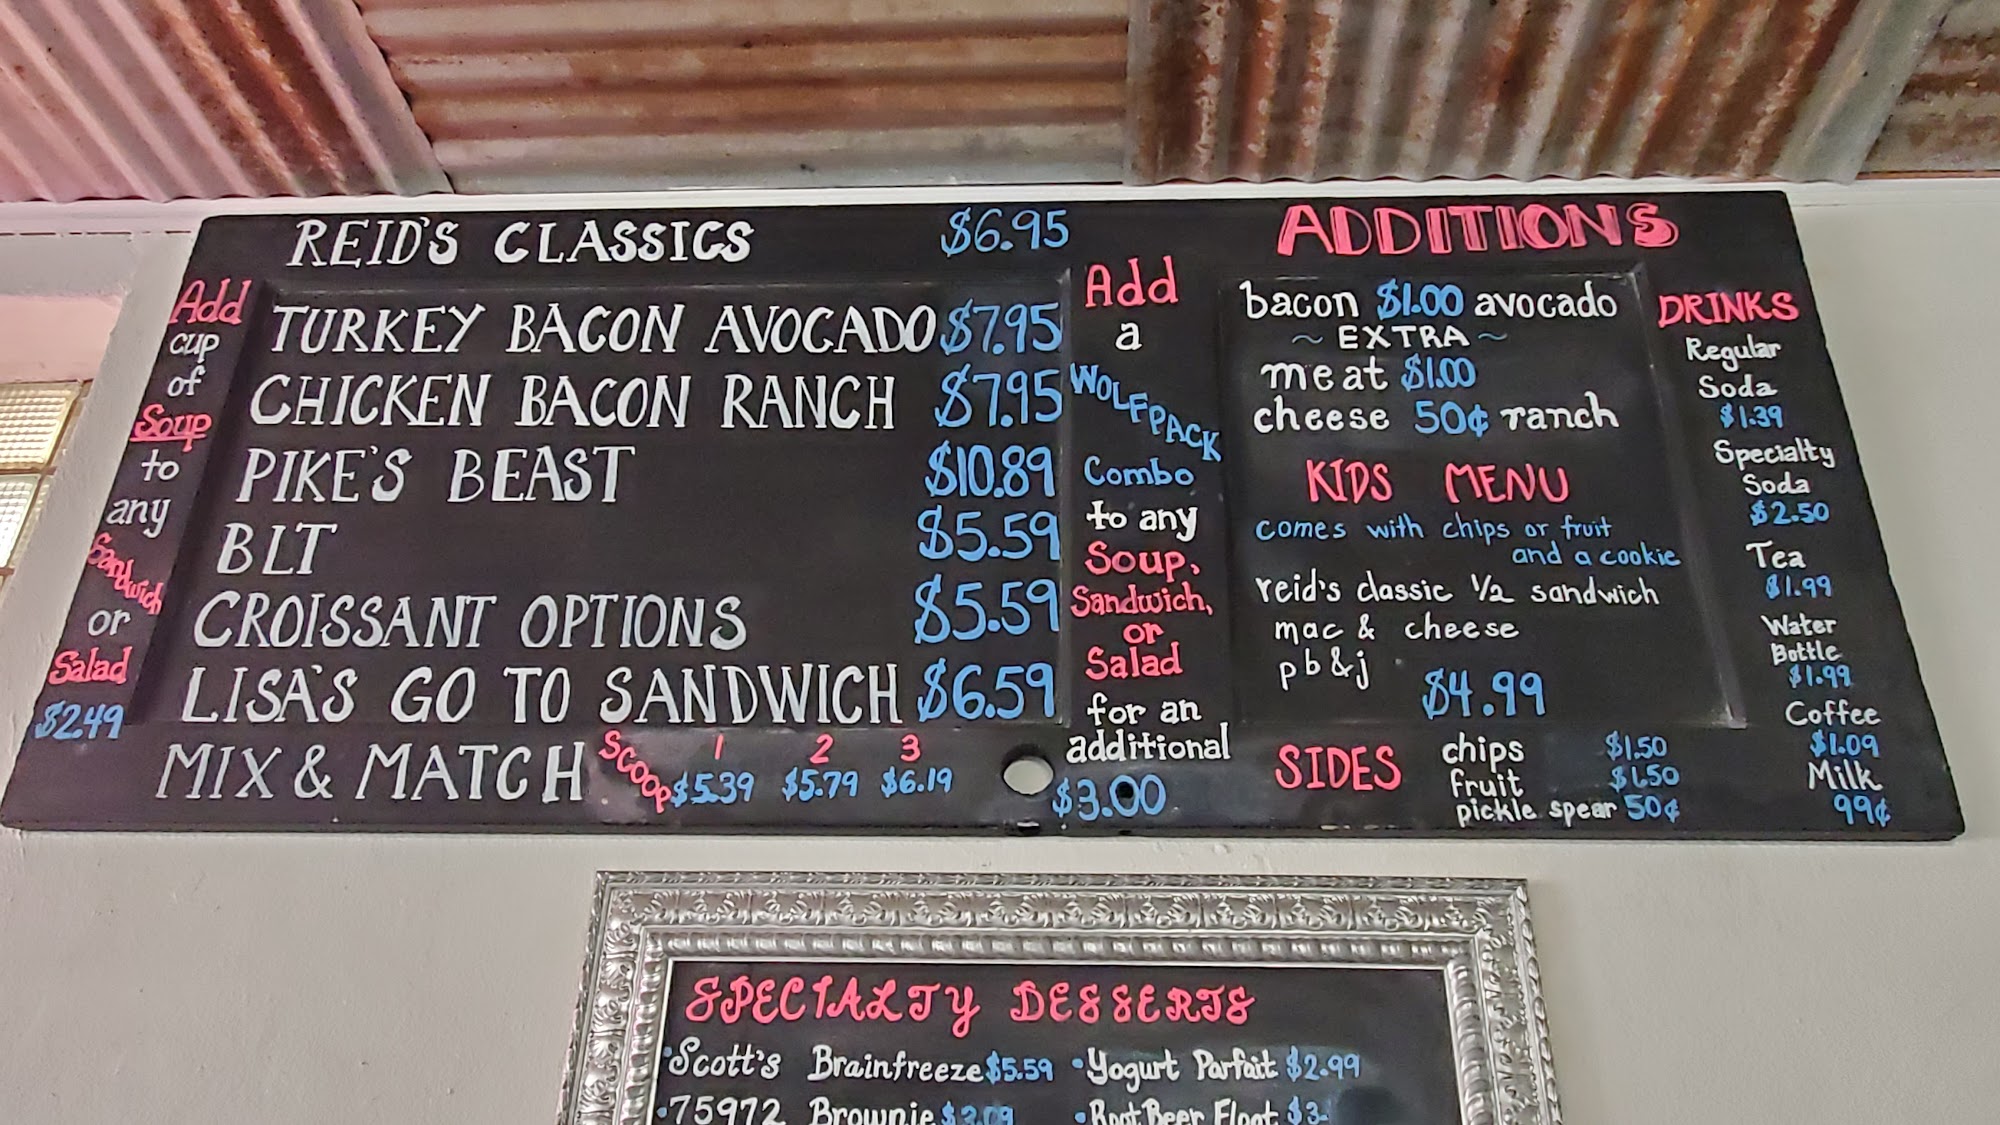 REID'S CLASSICS $6.95
TURKEY BACON AVOCADO $7.95
CHICKEN BACON RANCH $7.95
PIKE'S BEAST $10.89
BLT $5.59
CROISSANT OPTIONS $5.59
LISA'S GO TO SANDWICH $6.59
MIX & MATCH
Scoop
1 2 3
$5.39 $5.79 $6.19
Add
cup
of
Soup
to
any
Sandwich
or
Salad
$2.49
Add
a
WOLFPACK
Combo
to any
Soup,
Sandwich,
or
Salad
for an
additional
$3.00
ADDITIONS
bacon $1.00 avocado
~ EXTRA ~
meat $1.00
cheese 50¢ ranch
KIDS MENU
comes with chips or fruit
and a cookie
reid's classic 1/2 sandwich
mac & cheese
pb&j
$4.99
SIDES
chips $1.50
fruit $1.50
pickle spear 50¢
DRINKS
Regular
Soda
$1.39
Specialty
Soda
$2.50
Tea
$1.99
Water
Bottle
$1.99
Coffee
$1.09
Milk
99¢
SPECIALTY DESSERTS
•Scott's Brainfreeze $5.59
•75972 Brownie
•Yogurt Parfait $2.99
•Root Beer Float